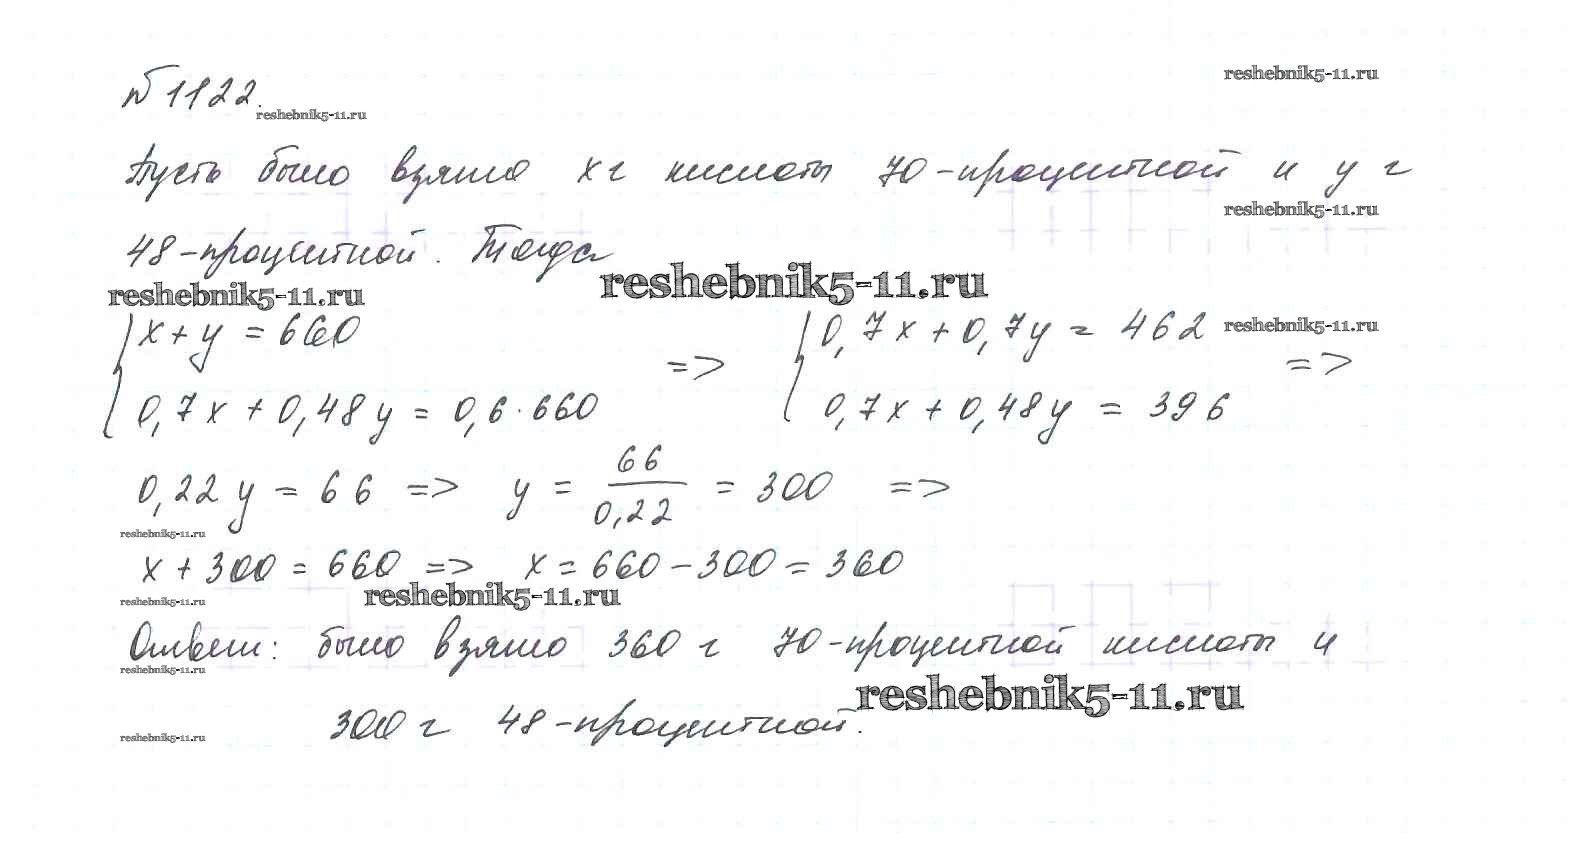 № 1122.
reshebnik5-11.ru
reshebnik5-11.ru
Пусть было взято x г кислоты 70-процентной и y г
reshebnik5-11.ru
48-процентной. Тогда
reshebnik5-11.ru
reshebnik5-11.ru
{ x + y = 660 => { 0,7x + 0,7y = 462 =>
reshebnik5-11.ru
0,7x + 0,48y = 0,6·660 0,7x + 0,48y = 396
0,22y = 66 => y = 66/0,22 = 300 =>
reshebnik5-11.ru
x + 300 = 660 => x = 660 - 300 = 360
reshebnik5-11.ru
reshebnik5-11.ru
Ответ: было взято 360 г 70-процентной кислоты и
reshebnik5-11.ru
reshebnik5-11.ru
300 г 48-процентной.
reshebnik5-11.ru